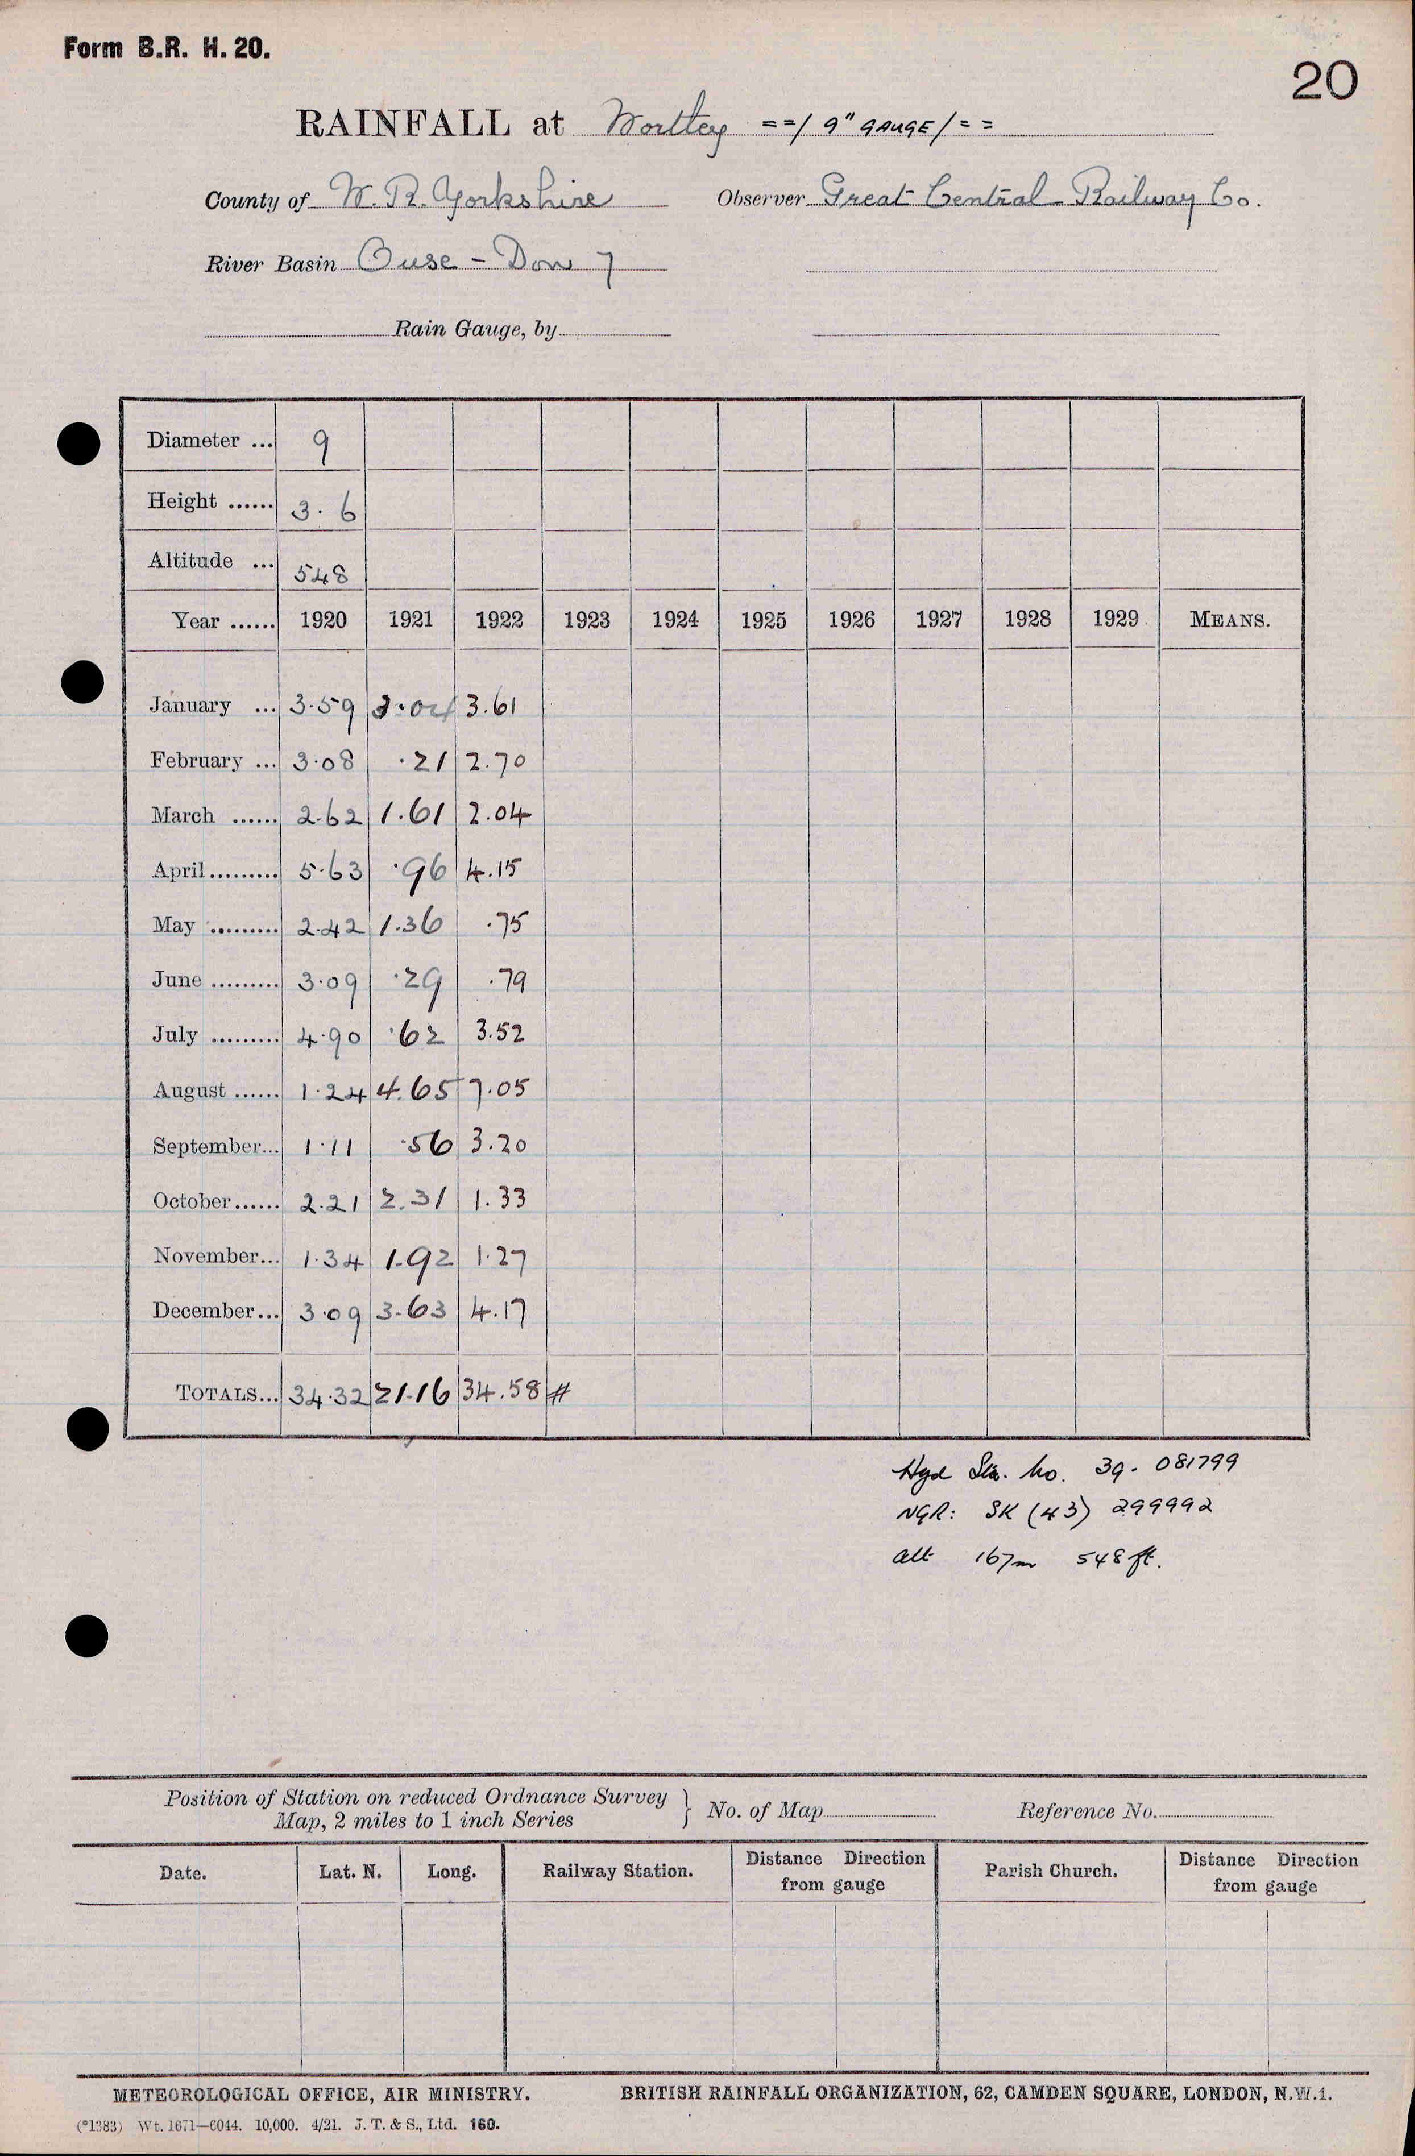 Form B.R. H. 20.
20
RAINFALL at Wortley ==/ 9" GAUGE/==
County of W. R. Yorkshire Observer Great Central Railway Co.
River Basin Ouse - Don 7
Rain Gauge, by
Diameter ... 9
Height ...... 3. 6
Altitude ... 548
Year ...... 1920 1921 1922 1923 1924 1925 1926 1927 1928 1929 MEANS.
January ... 3.59 3.04 3.61
February ... 3.08 .21 2.70
March ...... 2.62 1.61 2.04
April ......... 5.63 .96 4.15
May ......... 2.42 1.36 .75
June ......... 3.09 .29 .79
July ......... 4.90 .62 3.52
August ...... 1.24 4.65 7.05
September... 1.11 .56 3.20
October ...... 2.21 2.31 1.33
November... 1.34 1.92 1.27
December... 3.09 3.63 4.17
TOTALS... 34.32 21.16 34.58 #
Hyd Sta. No. 39. 081799
NGR: SK (43) 299992
alt 167m 548 ft.
Position of Station on reduced Ordnance Survey
Map, 2 miles to 1 inch Series } No. of Map Reference No.
Date. Lat. N. Long. Railway Station. Distance Direction from gauge Parish Church. Distance Direction from gauge
METEOROLOGICAL OFFICE, AIR MINISTRY. BRITISH RAINFALL ORGANIZATION, 62, CAMDEN SQUARE, LONDON, N.W.1.
(*1383) Wt. 1671—6044. 10,000. 4/21. J. T. & S., Ltd. 160.